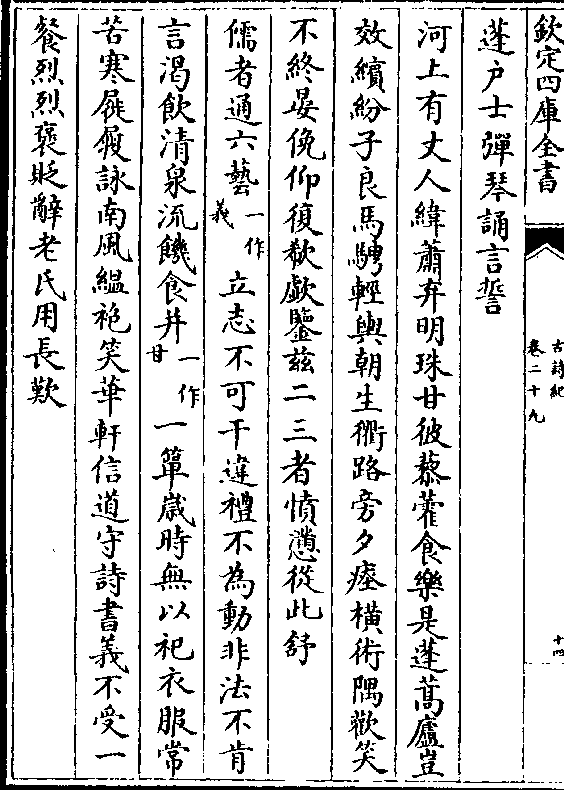 欽定四庫全書
古詩紀
卷二十九
十四
蓬戶士彈琴誦言誓
河上有丈人緯蕭弃明珠甘彼藜藿食樂是蓬蒿廬豈
效繽紛子良馬騁輕輿朝生衢路旁夕瘞橫術隅歡笑
不終晏俛仰復欷歔鑒兹二三者憤懣從此舒
儒者通六藝一作義立志不可干違禮不為動非法不肯
言渴飲清泉流饑食并一作甘一簞歲時無以祀衣服常
苦寒屣履詠南風緼袍笑華軒信道守詩書義不受一
餐烈烈褒貶辭老氏用長歎